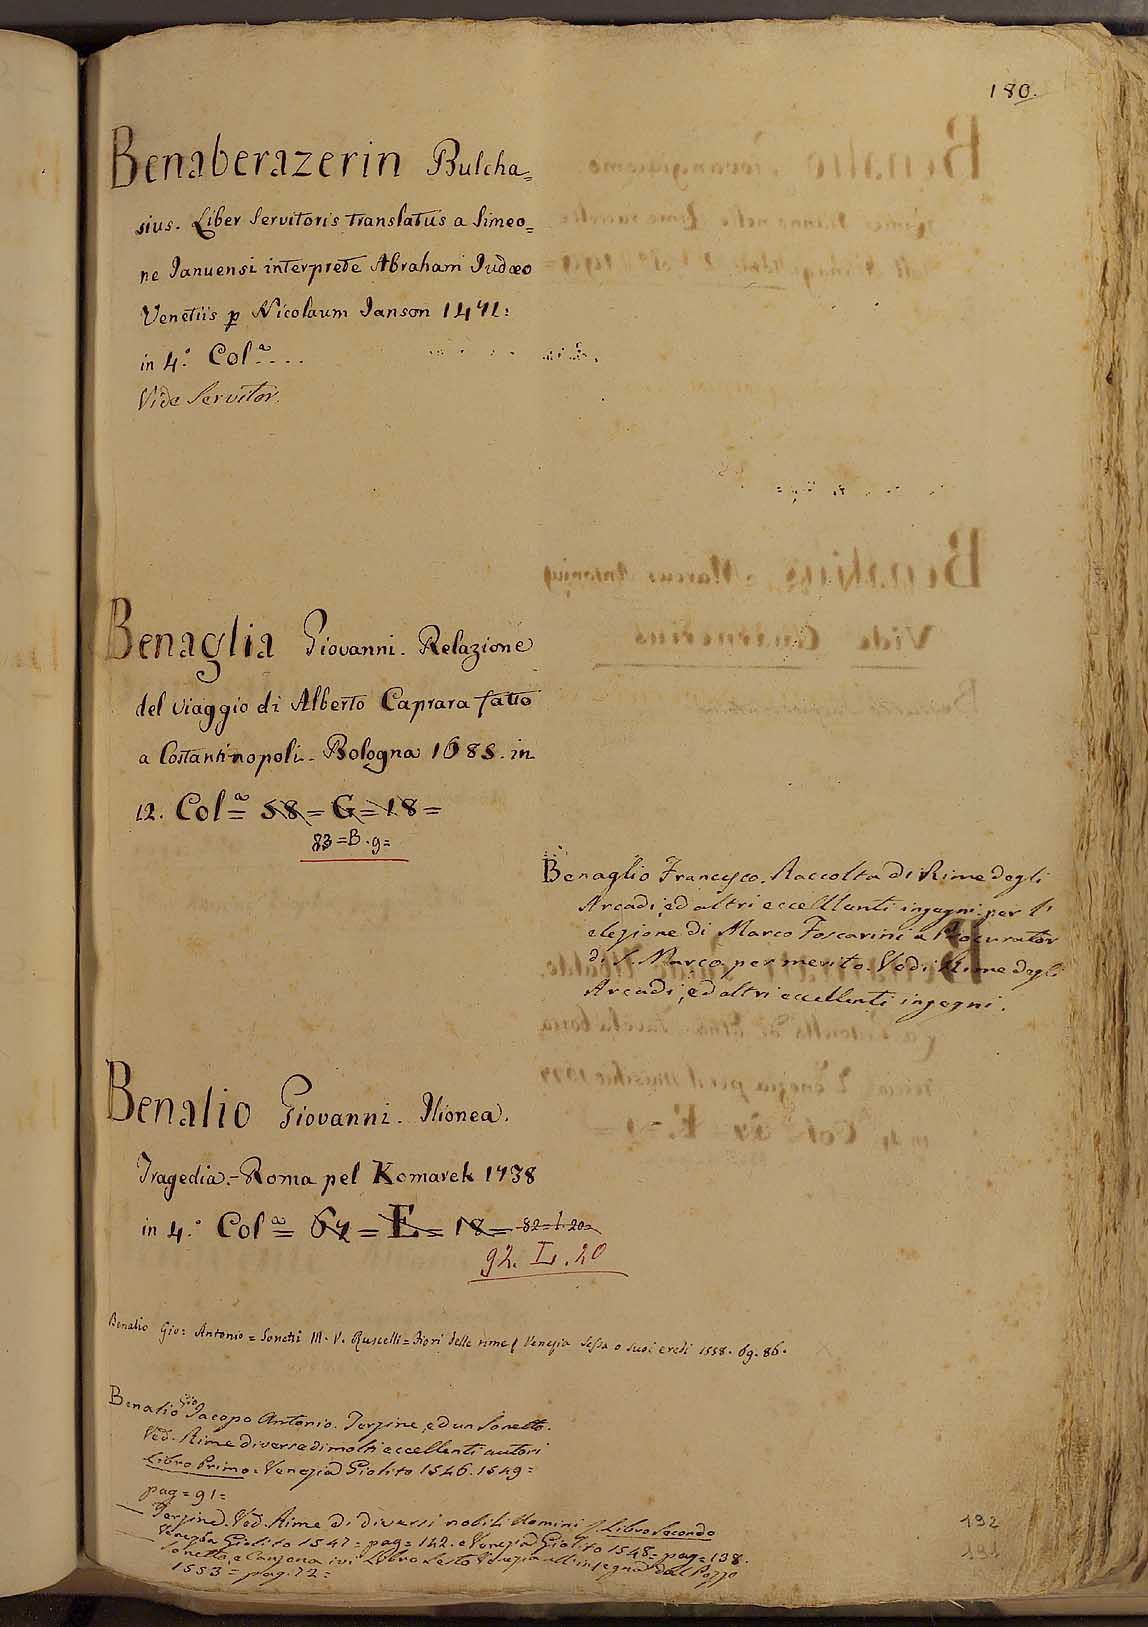 180.
Benaberazerin Bulcha=
sius. Liber Servitoris translatus a Simeo=
ne Januensi interprete Abraham Judæo
Venetiis p Nicolaum Janson 1471:
in 4.° Col.ª ...
Vide Servitor.
Benaglia Giovanni. Relazione
del viaggio di Alberto Caprara fatto
a Costantinopoli. Bologna 1685. in
12. Col.ª = 58 = G = 18 =
83 = B. 9 =
Benaglio Francesco. Raccolta di Rime degli
Arcadi, ed altri eccellenti ingegni per l'
elezione di Marco Foscarini a Procurator
di S. Marco per merito. Vedi Rime degli
Arcadi, ed altri eccellenti ingegni.
Benalio Giovanni. Ilionea.
Tragedia. Roma pel Komarek 1738
in 4.° Col.ª = 67 = E = 18 = 82 = L 20
92. L. 20
Benalio Gio: Antonio = Sonetti III. V. Ruscelli = Fiori delle rime Venezia Sessa o suoi eredi 1558. 69. 86.
Benalio Gio Jacopo Antonio. Terzine, ed un Sonetto.
Ved. Rime diverse di molti eccellenti autori
Libro Primo. Venezia Giolito 1546. 1549 =
pag = 91 =
— Terzine. Ved. Rime di diversi nobili Uomini Libro Secondo
Venezia Giolito 1547 = pag = 142. e Venezia Giolito 1548 = pag = 138.
— Sonetto, e Canzona ivi Libro Sesto Venezia all'insegna del Pozzo
1553 = pag. 72 =
192
191